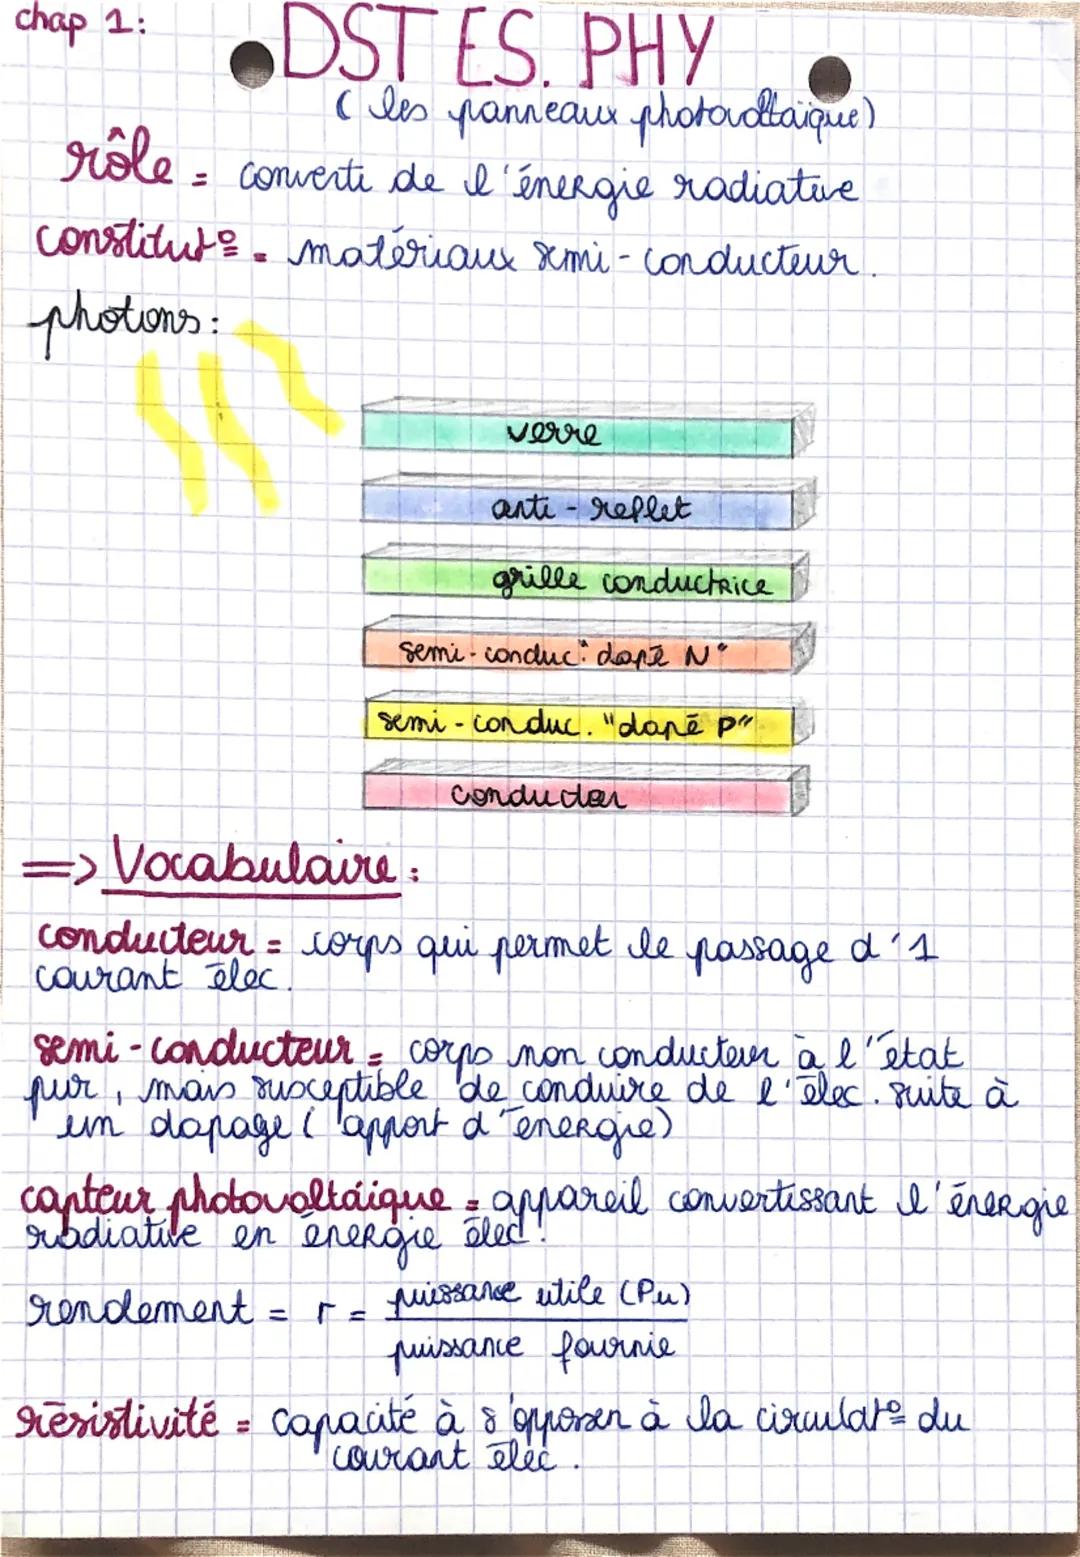 chap 1:
DST ES. PHY
( les panneaux photovoltaïque)
rôle = converti de l'énergie radiative
constitut° = matériaux semi-conducteur.
photons:
verre
anti-reflet
grille conductrice
semi-conduc. "dopé N"
semi-conduc. "dopé P"
conducteur
=> Vocabulaire:
conducteur = corps qui permet le passage d'1
courant élec.
semi-conducteur = corps non conducteur à l'état
pur, mais susceptible de conduire de l'élec. suite à
un dopage (apport d'énergie)
capteur photovoltaïque = appareil convertissant l'énergie
radiative en énergie élec.
rendement = r = puissance utile (Pu)
puissance fournie
résistivité = capacité à s'opposer à la circulat° du
courant élec.